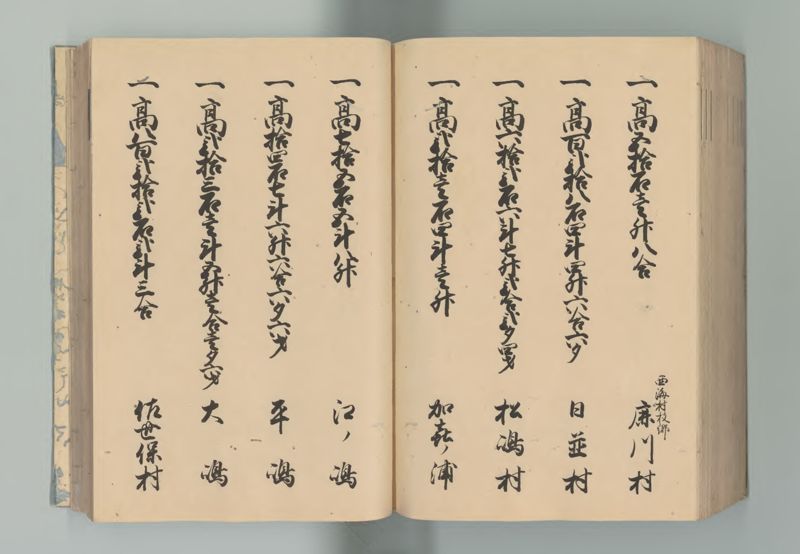 一高五拾石壱升八合 西海村枝郷 麻川村
一高百弐拾八石四斗四升六合六夕 日並村
一高六拾弐石六斗七升弐合弐夕四才 松嶋村
一高弐拾壱石四斗壱升 加喜ノ浦
一高七拾五石五斗八升 江ノ嶋
一高拾四石七斗六升六合六夕六才 平嶋
一高弐拾三石壱斗五升壱合壱夕六才 大嶋
一高八百弐拾弐石弐斗三合 佐世保村